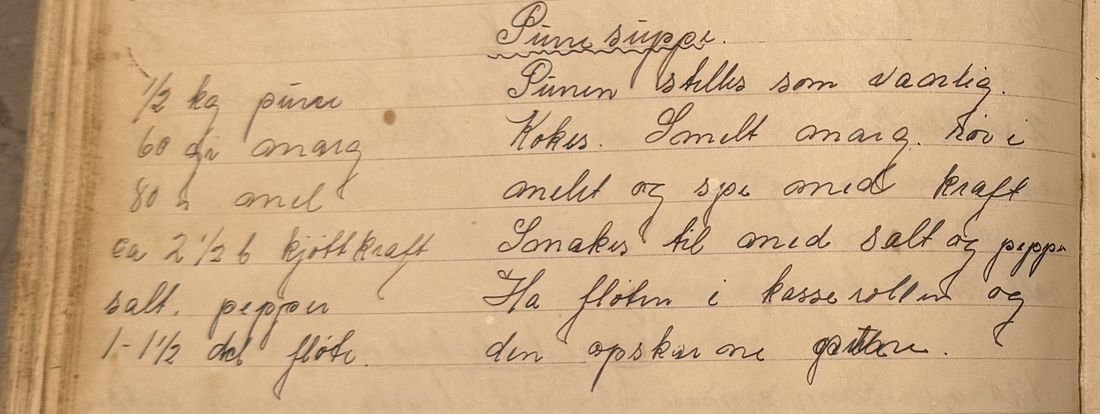 Purre suppe.
1/2 kg purre
60 gr marg
80 " mel
ca 2 1/2 l kjøttkraft
salt. pepper
1-1 1/2 dl fløte.
Purren stelles som vanlig.
Kokes. Smelt marg. rør i
melet og spe med kraft
Smakes til med salt og pepper
Ha fløten i kasserollen og
den opskarne